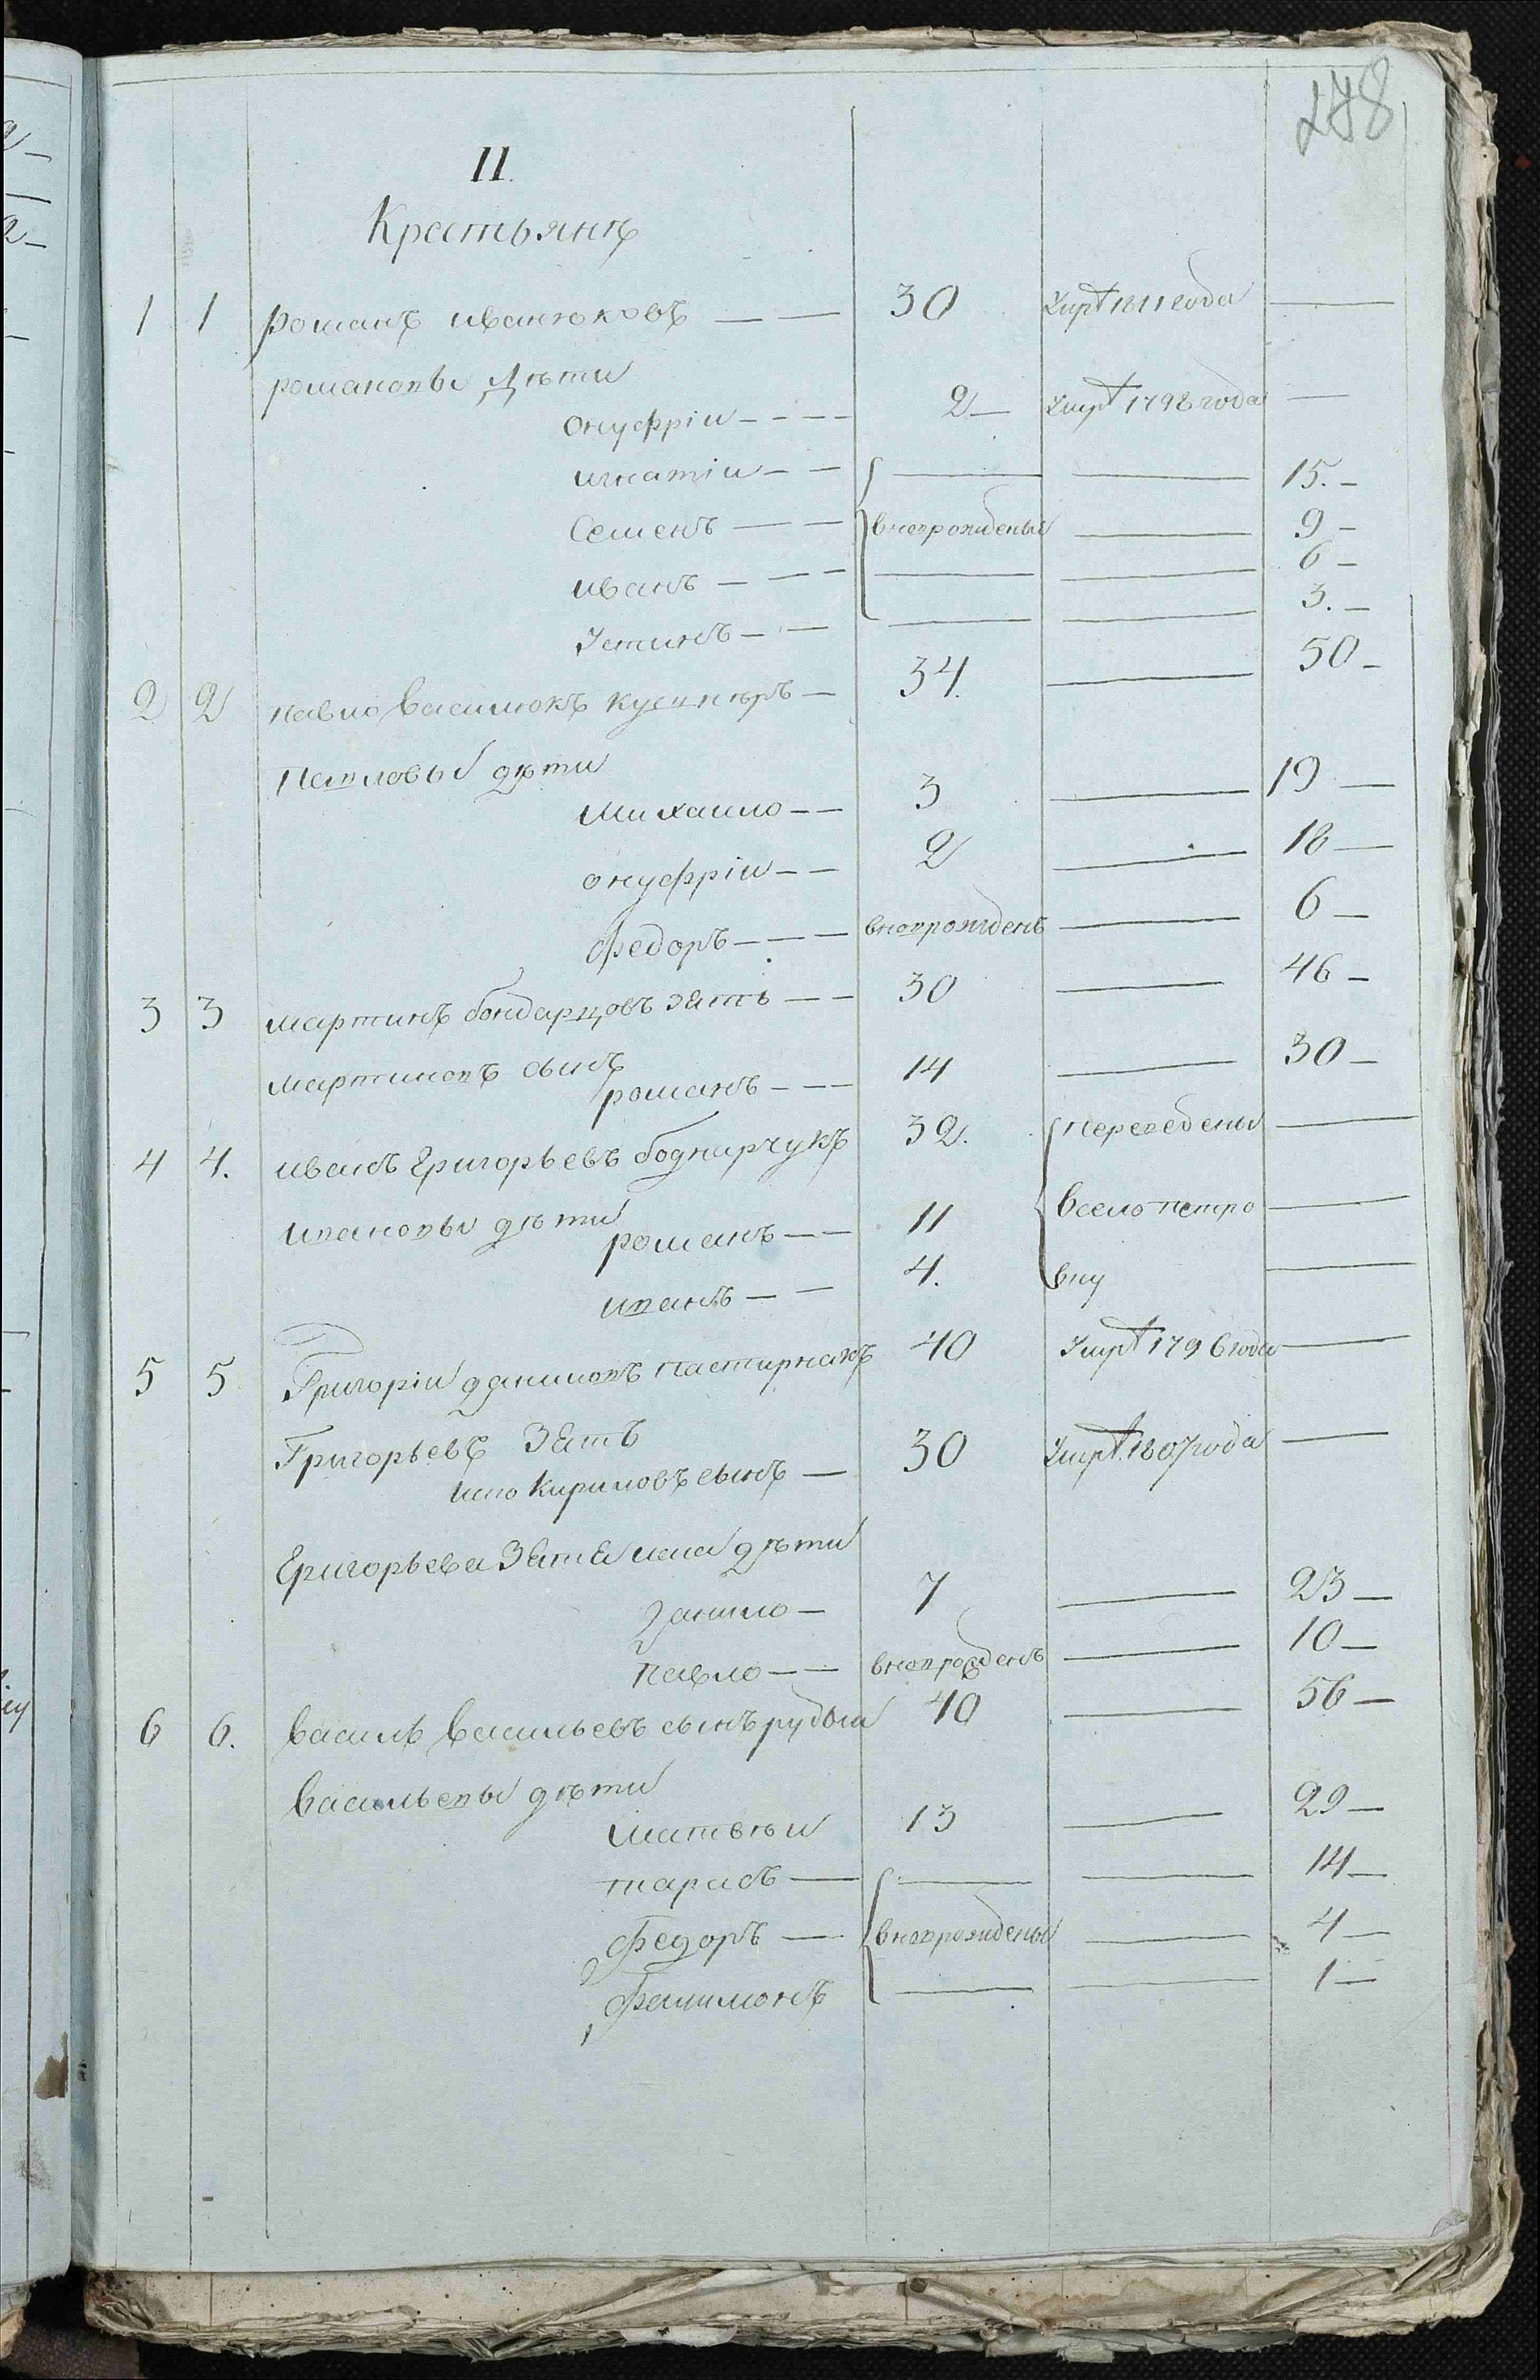 278
II.
Крестьянъ
1 1 романъ иванюковъ — — 30 Умръ 1811 года —
романовы Дѣти
онуфріи - - - - 2 — Умръ 1798 года —
игнатіи - — — — 15. -
Семенъ — — вновьрождены — 9 -
иванъ — — — — — 6 -
Устинъ - — — — 3. -
2 2 павло василюкъ кушнѣръ — 34. — 50 -
Павловы дѣти
михаило - - 3 — 19 —
онуфріи - - 2 — 18 —
федоръ - - - вновьрожденъ — 6 —
3 3 мартинъ бондарцовъ зять - - 30 — 46 -
мартиновъ сынъ
романъ - - - 14 — 30 -
4 4. иванъ григорьевъ боднарчукъ 32. переведены —
ивановы дѣти
романъ - - 11 всело петро —
иванъ - - 4. вку —
5 5 Григоріи даниловъ пастирнакъ 40 Умръ 1796 года —
Григорьевъ Зять
илло кириловъ сынъ — 30 Умръ 1807 года —
Григорьева Зятя дѣти
данило — 7 — 23 —
павло - - вновьрожденъ — 10 —
6 6. василь васильевъ сынъ рудыи 40 — 56 —
васильевы дѣти
матвѣи 13 — 29 —
тарасъ — — — 14 —
федоръ — вновьрождены — 4 —
филимонъ — — 1 —